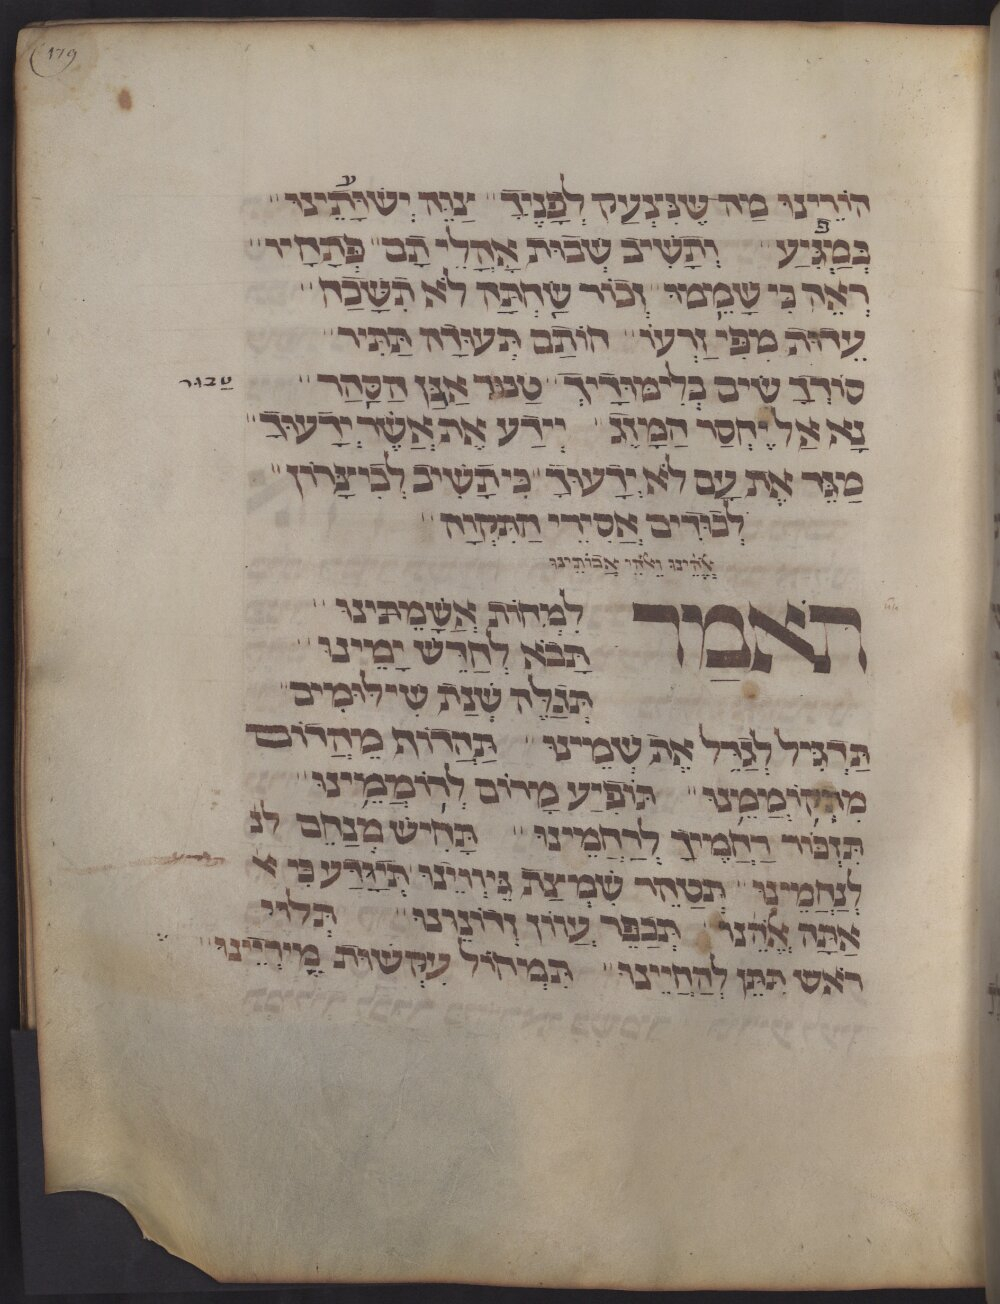 179
הוֹרֵינוּ מַה שֶּׁנִּצְעַק לְפָנֶיךָ צַוֵּה יְשׁוּעָתֵינוּ
בְּמַפְגִּיעַ וְתָשִׁיב שְׁבוּת אָהֳלֵי תָם פְּתָחָיו
רְאֵה כִּי שָׁמֵמוּ וְכוֹר שִׂחְתָּה לֹא תִשָּׁכַח
עֵדוּת מִפִּי זַרְעוֹ חוֹתַם תְּעוּדָה תַּתִּיר
סוֹדְךָ שִׂים בְּלִימּוּדֶיךָ טבור אַגַּן הַסַּהַר
טַבּוּר
נָא אַל יֶחְסַר הַמָּזֶג וְיֵדַע אֶת אֲשֶׁר יְדָעוּךָ
מַגֵּר אֶת עָם לֹא יְדָעוּךָ כִּי תָשִׁיב לְבִיצָּרוֹן
לְכוּדִים אֲסִירֵי הַתִּקְוָה
אֱלֹהֵינוּ וֵאלֹהֵי אֲבוֹתֵינוּ
תֹּאמַר לִמְחוֹת אֲשָׁמֵתֵינוּ
תָּבֹא לְחַדֵּשׁ יָמֵינוּ
תְּכַלֶּה שְׁנַת שִׁילּוּמִים
תַּרְגִּיל לְגַדֵּל אֶת שְׁמֵינוּ תַּהֲדוֹת מֵהֲרוֹס
מִתְקוֹמְמֵנוּ תּוֹפִיעַ מָרוֹם לְרוֹמְמֵינוּ
תִּזְכּוֹר רַחֲמֶיךָ לְרַחֲמֵינוּ תָּחִישׁ מְנַחֵם לנ
לְנַחֲמֵינוּ תְּטַהֵר שִׁמְצַת גֵּיוֵינוּ תִּוָּדַע כִּי א
אַתָּה אֱלֹהֵנוּ תְּכַפֵּר עֲווֹן זְדוֹנֵנוּ תְּלוּיֵ
רֹאשׁ תִּתֵּן לְהַחֲיֵינוּ תִּמְחוֹל עִקְּשׁוּת מֶירְיֵינוּ